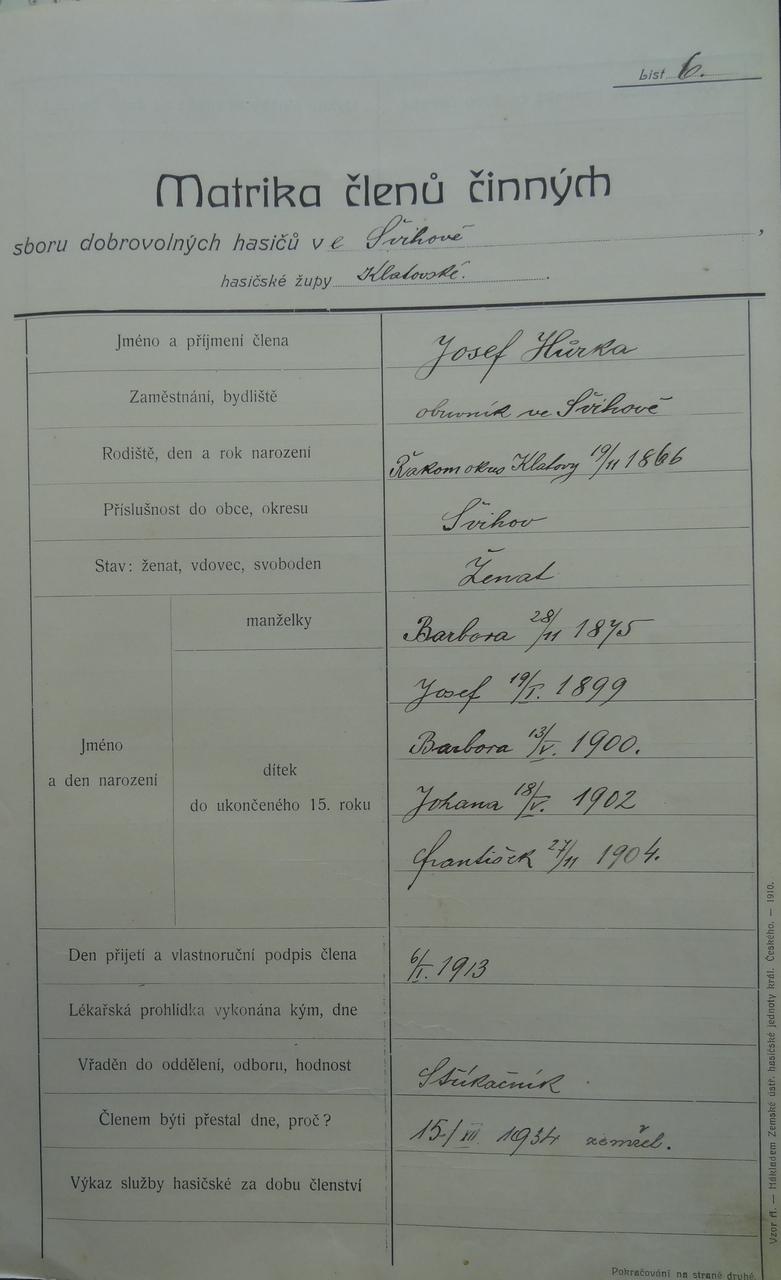 List 6.
Matrika členů činných
sboru dobrovolných hasičů v e Švihově,
hasičské župy Klatovské.
Jméno a příjmení člena Josef Hůrka
Zaměstnání, bydliště obuvník ve Švihově
Rodiště, den a rok narození Řakom okres Klatovy 19/11 1866
Příslušnost do obce, okresu Švihov
Stav: ženat, vdovec, svoboden Ženat
manželky Barbora 28/11 1875
Josef 19/I. 1899
Jméno Barbora 13/V. 1900.
a den narození dítek
do ukončeného 15. roku Johana 18/V. 1902
František 27/11 1904.
Den přijetí a vlastnoruční podpis člena 6/I. 1913
Lékařská prohlídka vykonána kým, dne
Vřaděn do oddělení, odboru, hodnost Stříkačník
Členem býti přestal dne, proč? 15/VII. 1934 zemřel.
Výkaz služby hasičské za dobu členství
Vzor A. — Nákladem Zemské ústř. hasičské jednoty král. Českého. — 1910.
Pokračování na straně druhé